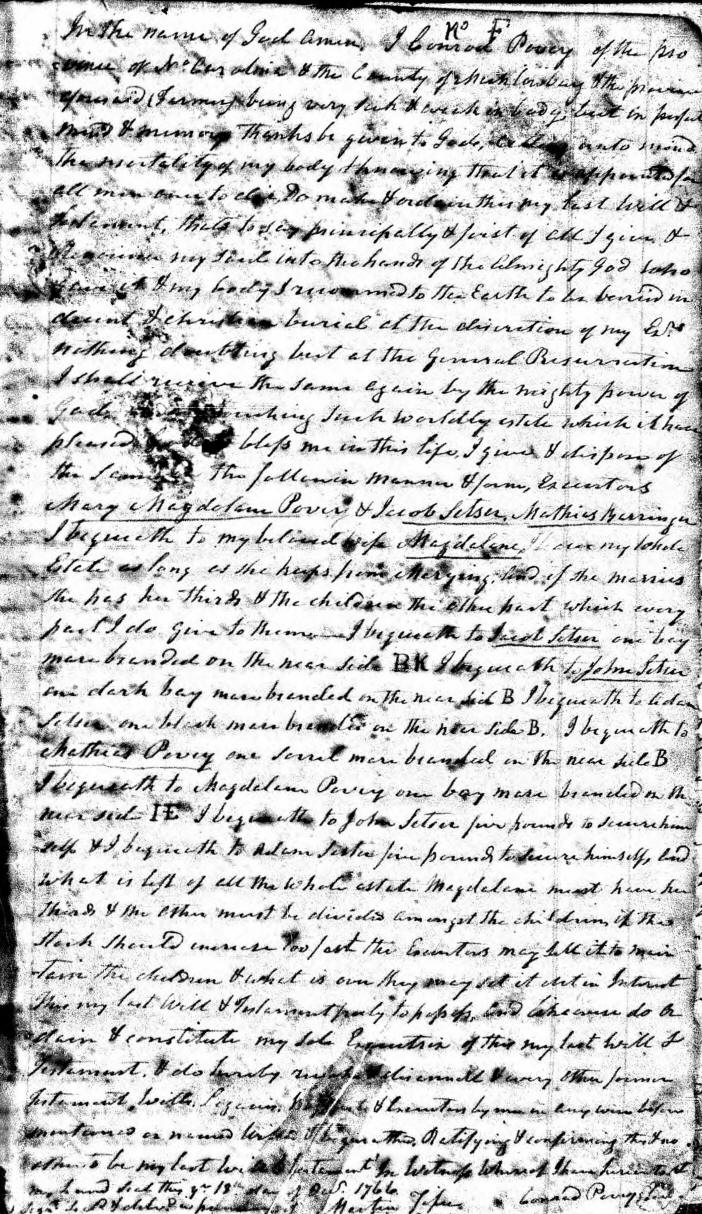 No F
In the name of God Amen, I Conrod Povey of the pro
vince of No Carolina & the County of Mecklenburg & the province
aforesaid (Farmer) being very sick & weak in body, but in perfect
mind & memory thanks be given to God, calling unto mind
the mortality of my body & knowing that it is appointed for
all men once to die, Do make & ordain this my last Will &
Testament, thats to say principally & first of all I give &
my Soul into the hands of the Almighty God who
gave it & my body I recommend to the Earth to be buried in
decent & christian burial at the discretion of my Exrs
nothing doubting but at the General Resurrection
I shall receive the same again by the mighty power of
God, touching such worldly estate which it has
pleased bless me in this life, I give & dispose of
the same the followin manner & form, Executors
Mary Magdalane Povey & Jacob Setser, Mathias Barringer
I bequeath to my beloved wife Magdalene, my whole
Estate as long as she keeps from Marrying, And if she marries
she has her thirds & the children the other part which every
part I do give to them I bequeath to Jacob Setser one bay
mare branded on the near side BK I bequeath to John Setser
one dark bay mare branded on the near side B I bequeath to Adam
Setser one black mare branded on the near side B. I bequeath to
Mathias Povey one sorrel mare branded on the near side B
I bequeath to Magdalane Povey one bay mare branded on the
near side IE I bequeath to John Setser five pounds to secure him
self & I bequeath to Adam Setser five pounds to secure himself, And
what is left of all the whole estate Magdalane must have her
thirds & the other must be divided amongst the children, if the
Stock should increase too fast the Executors may sell it to main
tain the children & what is over they may set it out in Interest
this my last Will & Testament to possess, And Likewise do Or
dain & constitute my sole Executrix of this my last Will &
Testament, & do hereby revoke & disannull & every other former
Testament, Wills, Legacies, & Executors by me in any wise before
mentioned or named Willed & bequeathed, Ratifying & confirming this & no
other to be my last Will & Testament In Witness Whereof I have hereunto set
my hand seal this 18th day of 1766
Signd Seald & deliverd in presence of Martin Conrad Povey